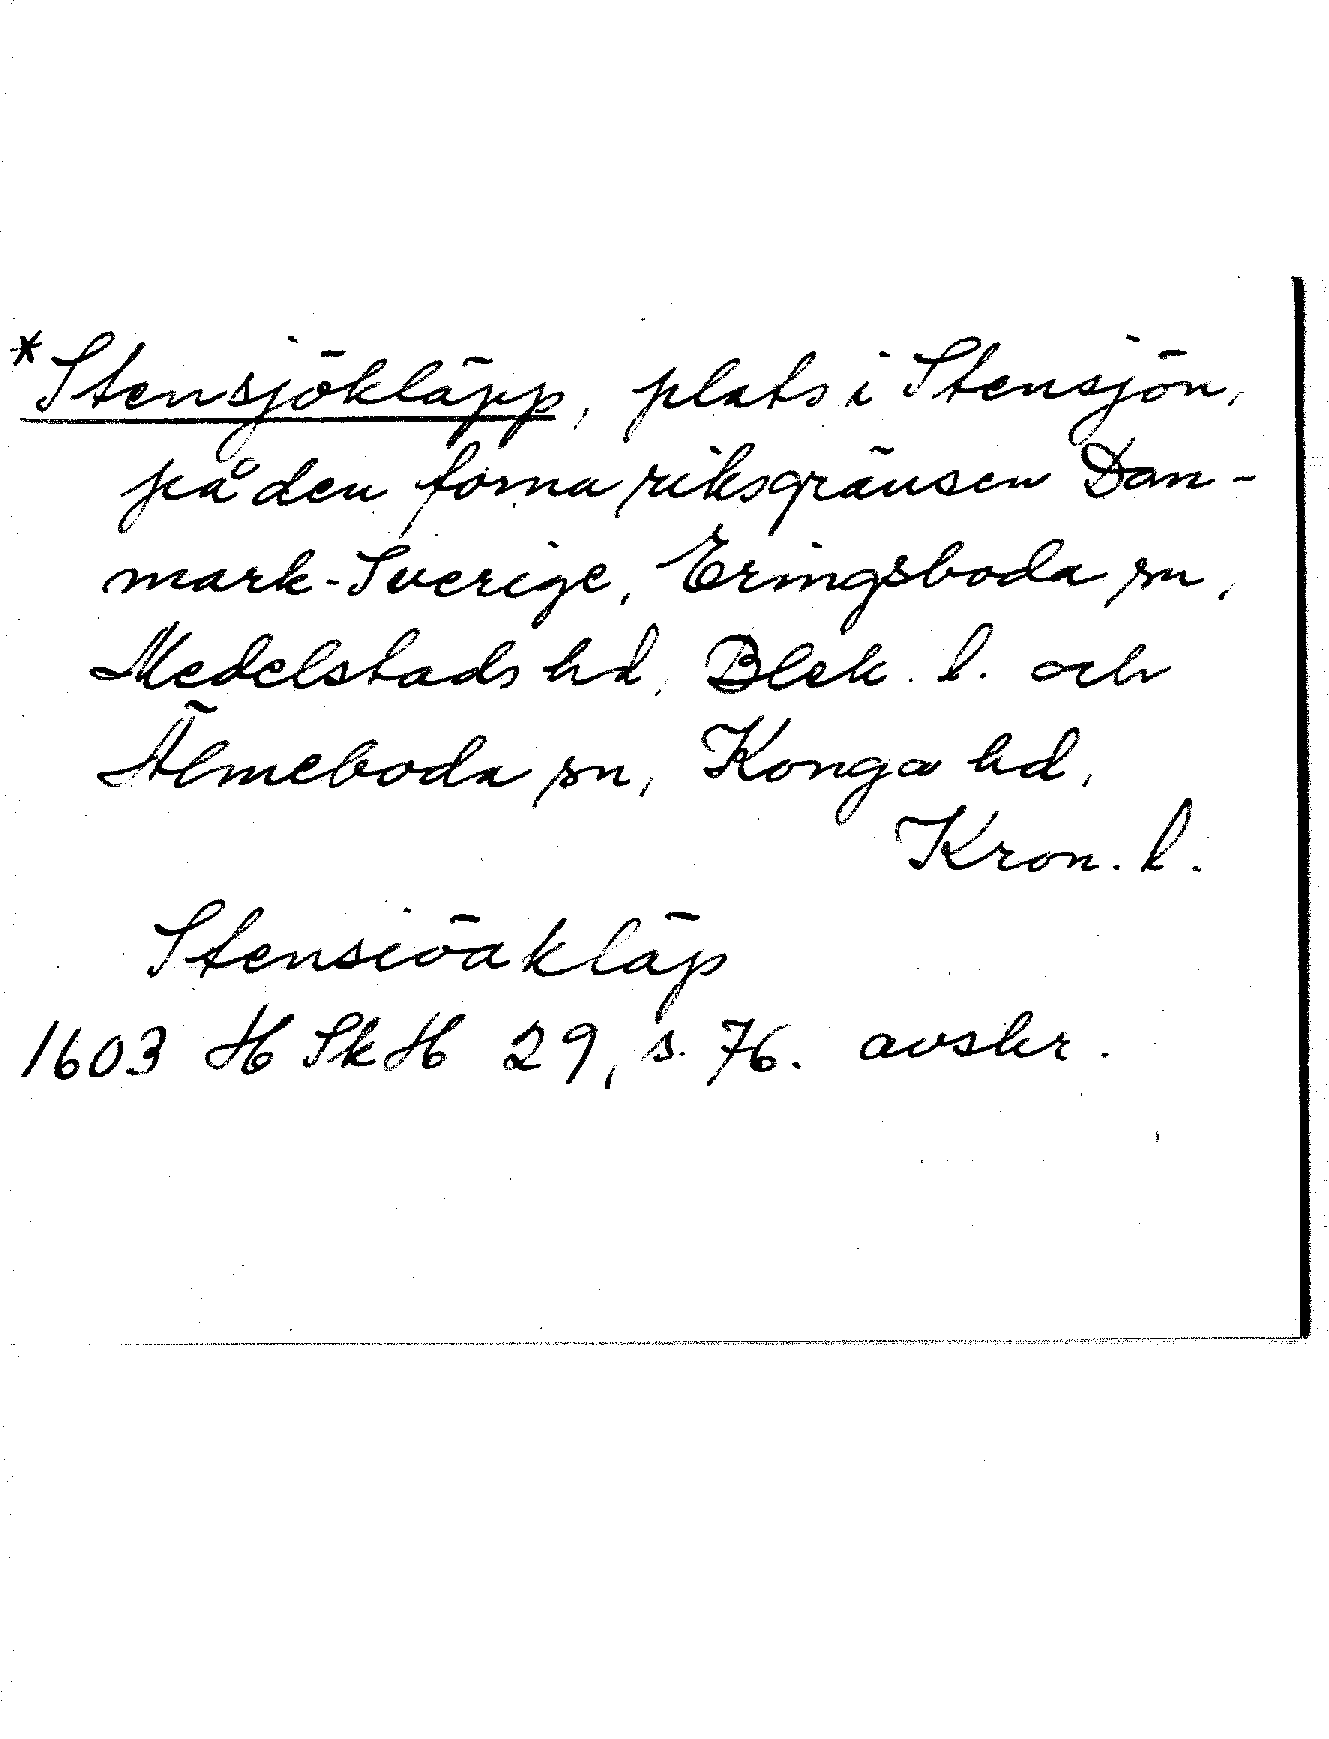 *Stensjökläpp, plats i Stensjön,
på den forna riksgränsen Dan-
mark-Sverige, Eringsboda sn,
Medelstads hd, Blek. l. och
Älmeboda sn, Konga hd,
Kron. l.
Stensiöäkläp
1603 H Sk H 29, s. 76. avskr.